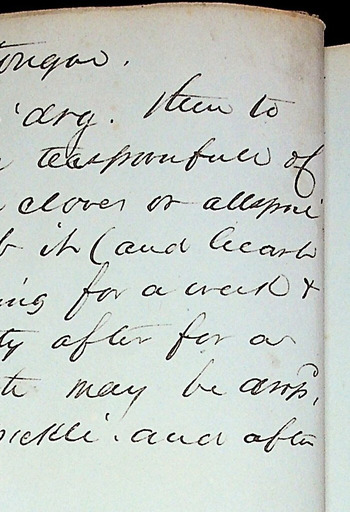 tongue.
dry. then to
teaspoonfull of
cloves or allspice
it (and
ing for a week &
ty after for a
may be drop.
pickle. and after